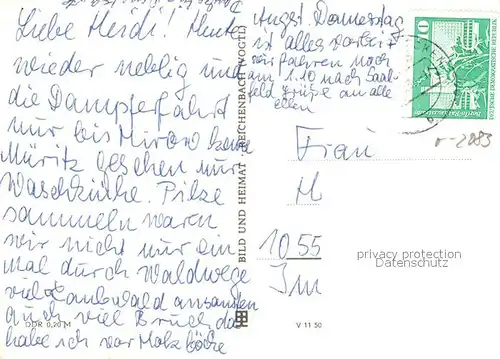 Liebe Heidi! Heute
wieder neblig und
die Dampferfahrt
nur bis Mirow keine
Müritz gesehen nur
Waschküche. Pilze
sammeln waren
wir nicht nur ein
mal durch Waldwege
viel Laubwald ansonsten
auch viel Bruch, da
habe ich vor
Angst. Donnerstag
ist alles vorbei
wir fahren noch
am 1.10 nach Saal-
feld Grüße an alle
BILD UND HEIMAT · REICHENBACH (VOGTL)
10
Frau
M
1055
v-2083
privacy protection
Datenschutz
DDR 0,20 M
V 11 50